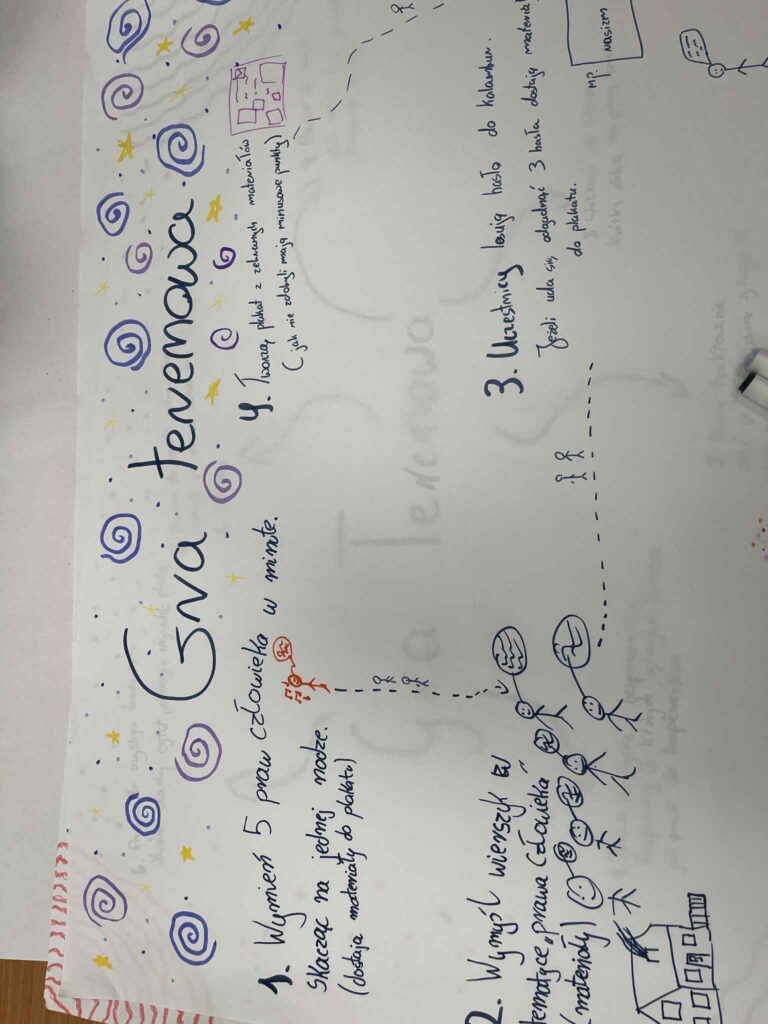 Gra terenowa
1. Wymień 5 praw człowieka w minutę.
skacząc na jednej nodze.
(dostają materiały do plakatu)
2. Wymyśl wierszyk w
tematyce „prawa człowieka"
(materiały)
3. Uczestnicy losują hasło do kalambur.
Jeżeli uda się odgadnąć 3 hasła dostają materiał
do plakatu.
np.
nasizm
4. Tworzą plakat z zebranych materiałów
(jak nie zdobyli mają minusowe punkty)